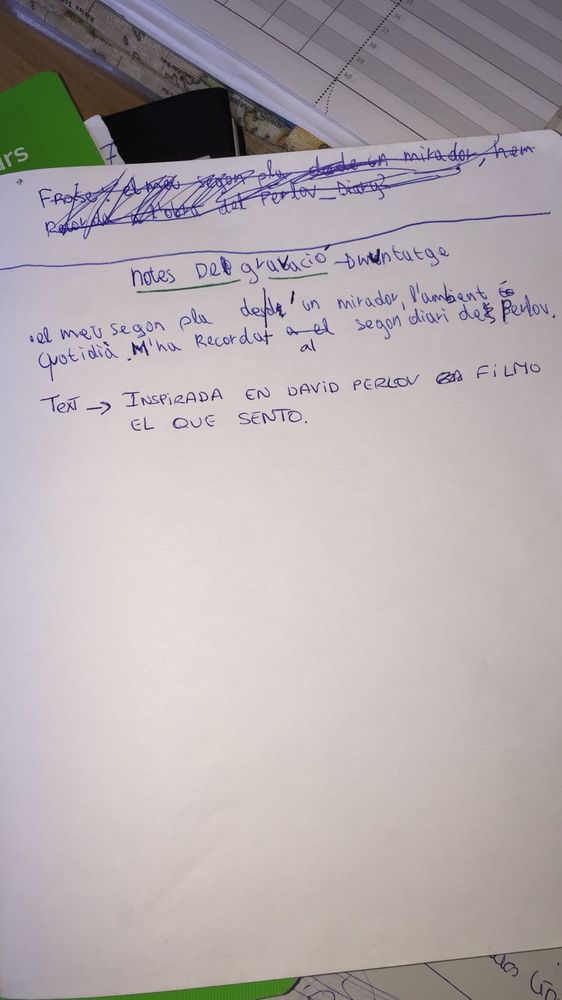 rs
7
40
Frase: el meu segon pla desde un mirador, hem
Recorda a l'obra del Perlov_Diary3
Notes Del gravació - Dmuntatge
.el meu segon pla desde' un mirador, l'ambient és
Quotidià. M'ha Recordat a el segon diari de Perlov.
al
Text → INSPIRADA EN DAVID PERLOV FILMO
EL QUE SENTO.